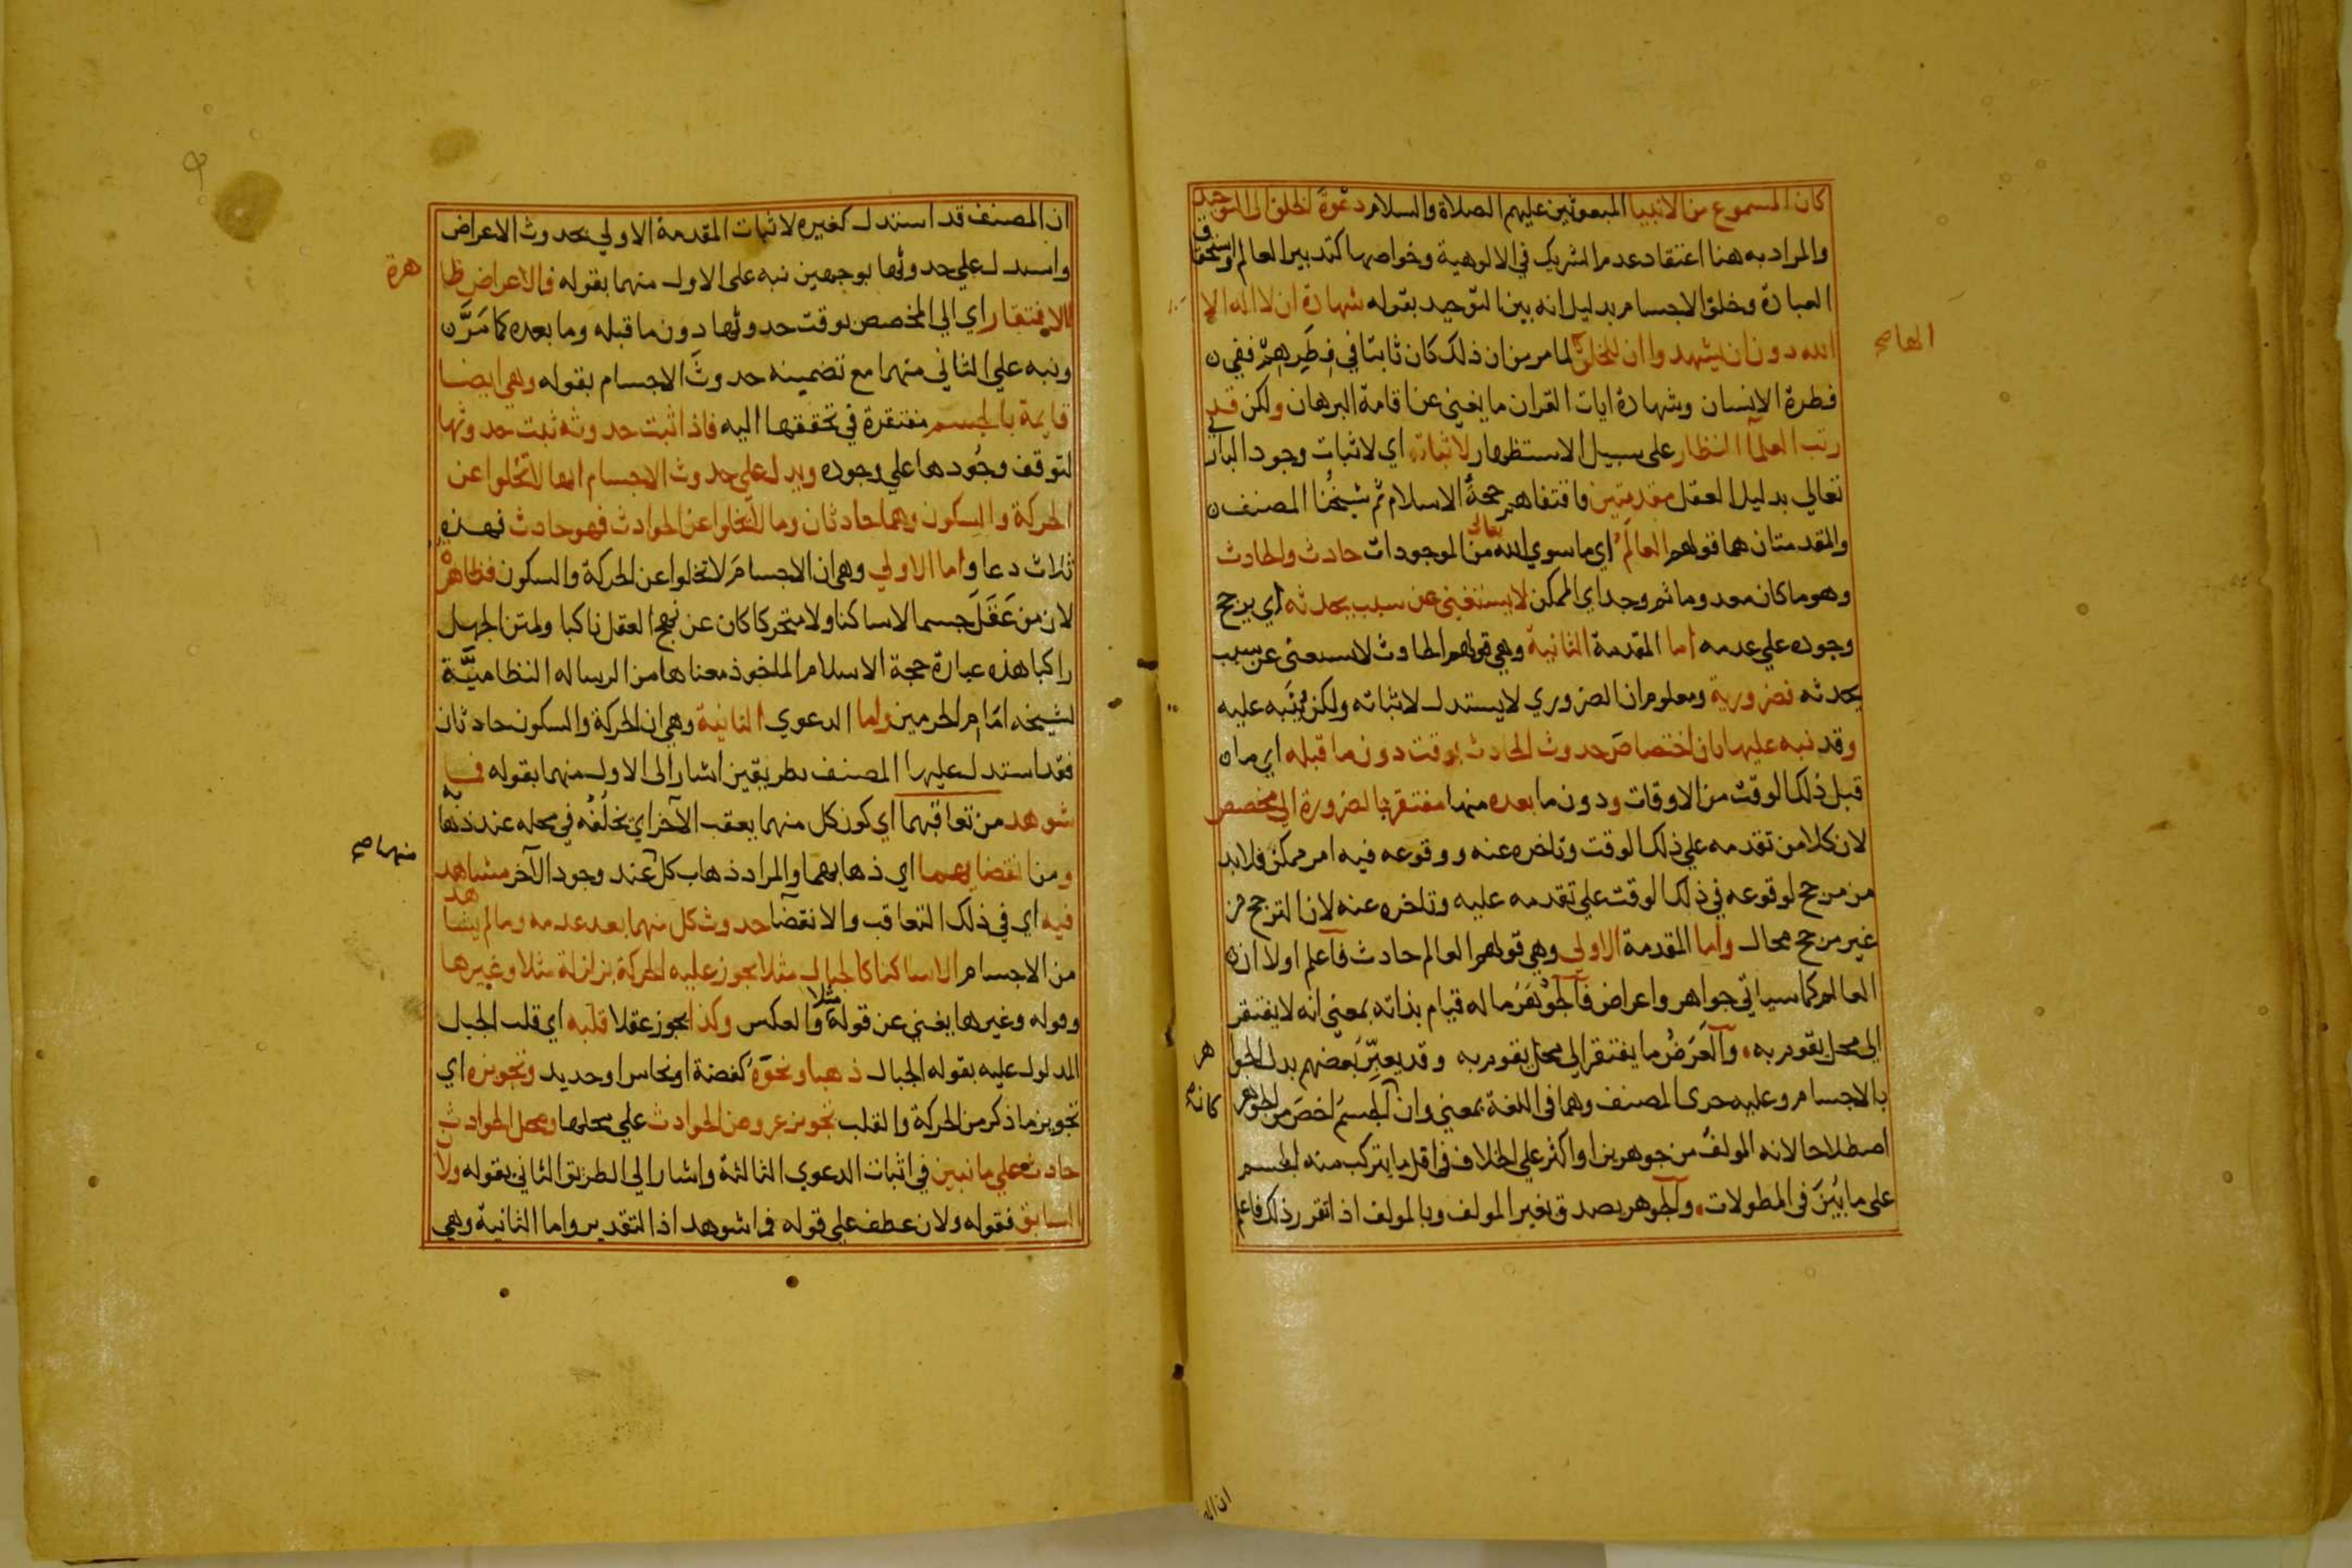 كان المسموع من الانبيا المبعوثين عليهم الصلاة والسلام دعوة الخلق الى التوحيد
والمراد به هنا اعتقاد عدم الشريك في الالوهية وخواصها كتدبير العالم واستحقاق
العبادة وخلق الاجسام بدليل انه بين التوحيد بقوله شهادة ان لا اله الا
الله دون ان يشهدوا ان للخلق لما مر من ان ذلك كان ثابتا في فطرهم ففي
الها صح
فطرة الانسان وشهادة ايات القران ما يغني عن اقامة البرهان ولكن قد
رتب العلما النظار على سبيل الاستظهار لاثباته اي لاثبات وجود الباري
تعالي بدليل العقل مقدمتين واقتفاهم حجة الاسلام ثم شيخنا المصنف
والمقدمتان هما قولهم العالم اي ما سوي الله تعالى من الموجودات حادث والحادث
وهو ما كان معدوما ثم وجد اي الممكن لا يستغني عن سبب يحدثه اي يرجح
وجوده علي عدمه اما المقدمة الثانية وهي قولهم الحادث لا يستغني عن سبب
يحدثه فضرورية ومعلوم ان الضروري لا يستدل لاثباته ولكن ينبه عليه
وقد نبه عليها بان اختصاص حدوث الحادث بوقت دون ما قبله اي ما
قبل ذلك الوقت من الاوقات ودون ما بعده منها مفتقر بالضرورة الي مخصص
لان كلا من تقدمه علي ذلك الوقت وتاخره عنه ووقوعه فيه امر ممكن فلا بد
من مرجح لوقوعه في ذلك الوقت علي تقدمه عليه وتاخره عنه لان الترجح من
غير مرجح محال واما المقدمة الاولي وهي قولهم العالم حادث فاعلم اولا ان
العالم كما سياتي جواهر واعراض فالجوهر ما له قيام بذاته بمعني انه لا يفتقر
الي محل يقوم به والعرض ما يفتقر الي محل يقوم به وقد يعبر بعضهم بدل الجوا
هر
بالاجسام وعليه جرى المصنف وهما في اللغة بمعني وان الجسم اخص من الجوهر
كانه
اصطلاحا لانه المولف من جوهرين او اكثر علي الخلاف في اقل ما يتركب منه الجسم
على ما بين في المطولات والجوهر يصدق بغير المولف وبالمولف اذا تقرر ذلك فاعلم
ان المصنف قد استدل كغيره لاثبات المقدمة الاولي بحدوث الاعراض
واستدل علي حدوثها بوجهين نبه على الاول منهما بقوله فالاعراض ظا
هرة
الافتقار اي الي المخصص بوقت حدوثها دون ما قبله وما بعده كما مر
ونبه علي الثاني منهما مع تضمينه حدوث الاجسام بقوله وهي ايضا
قايمة بالجسم مفتقرة في تحققها اليه فاذا ثبت حدوثه ثبت حدوثها
لتوقف وجودها علي وجوده ويدل علي حدوث الاجسام انها لا تخلوا عن
الحركة والسكون وهما حادثان وما لا يخلوا عن الحوادث فهو حادث فهذه
ثلاث دعاو اما الاولي وهي ان الاجسام لا تخلوا عن الحركة والسكون فظاهر
لان من عقل جسما لا ساكنا ولا متحركا كان عن نهج العقل ناكبا ولمتن الجهل
راكبا هذه عبارة حجة الاسلام الماخوذ معناها من الرساله النظامية
لشيخه امام الحرمين واما الدعوي الثانية وهي ان الحركة والسكون حادثان
فقد استدل عليها المصنف بطريقين اشار الى الاول منهما بقوله فما
شوهد من تعاقبهما اي كون كل منهما يعقب الآخر اي يخلفه في محله عند ذها به
ومن انقضايهما اي ذهابهما والمراد ذهاب كل عند وجود الآخر مشاهد
منهما صح
فيه اي في ذلك التعاقب والانقضا حدوث كل منهما بعد عدمه وما لم يشاهد
من الاجسام الا ساكنا كالجبال مثلا يجوز عليه الحركة بزلزلة مثلا وغيرها
وقوله وغيرها يغني عن قوله مثلا والعكس وكذا يجوز عقلا قلبه اي قلب الجبل
المدلول عليه بقوله الجبال ذهبا ونحوه كفضة او نحاس او حديد وتجويزه اي
تجويز ما ذكر من الحركة والقلب تجويز عروض الحوادث علي محلها ومحل الحوادث
حادث علي ما نبين في اثبات الدعوي الثالثة واشار الي الطريق الثاني بقوله ولان
السابق فقوله ولان عطف علي قوله فما شوهد اذ التقدير واما الثانية وهي